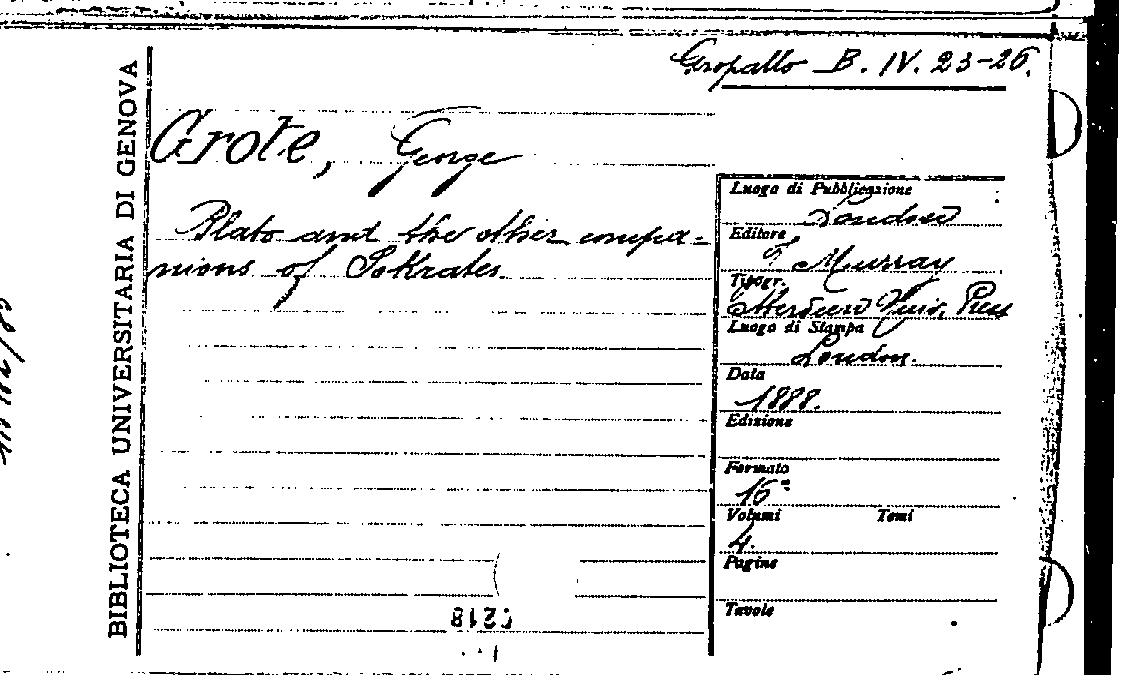 Gropallo B. IV. 23-26.
BIBLIOTECA UNIVERSITARIA DI GENOVA
Grote, George
Plato and the other compa-
nions of Sokrates.
Luogo di Pubblicazione
London
Editore
J Murray
Tipogr.
Aberdeen Univ. Press
Luogo di Stampa
London.
Data
1888.
Edizione
Formato
16°
Volumi Tomi
4.
Pagine
Tavole